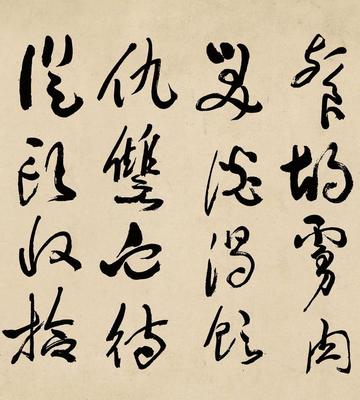 餐胡虜肉
笑談渴飲
仇讎血待
從頭收拾